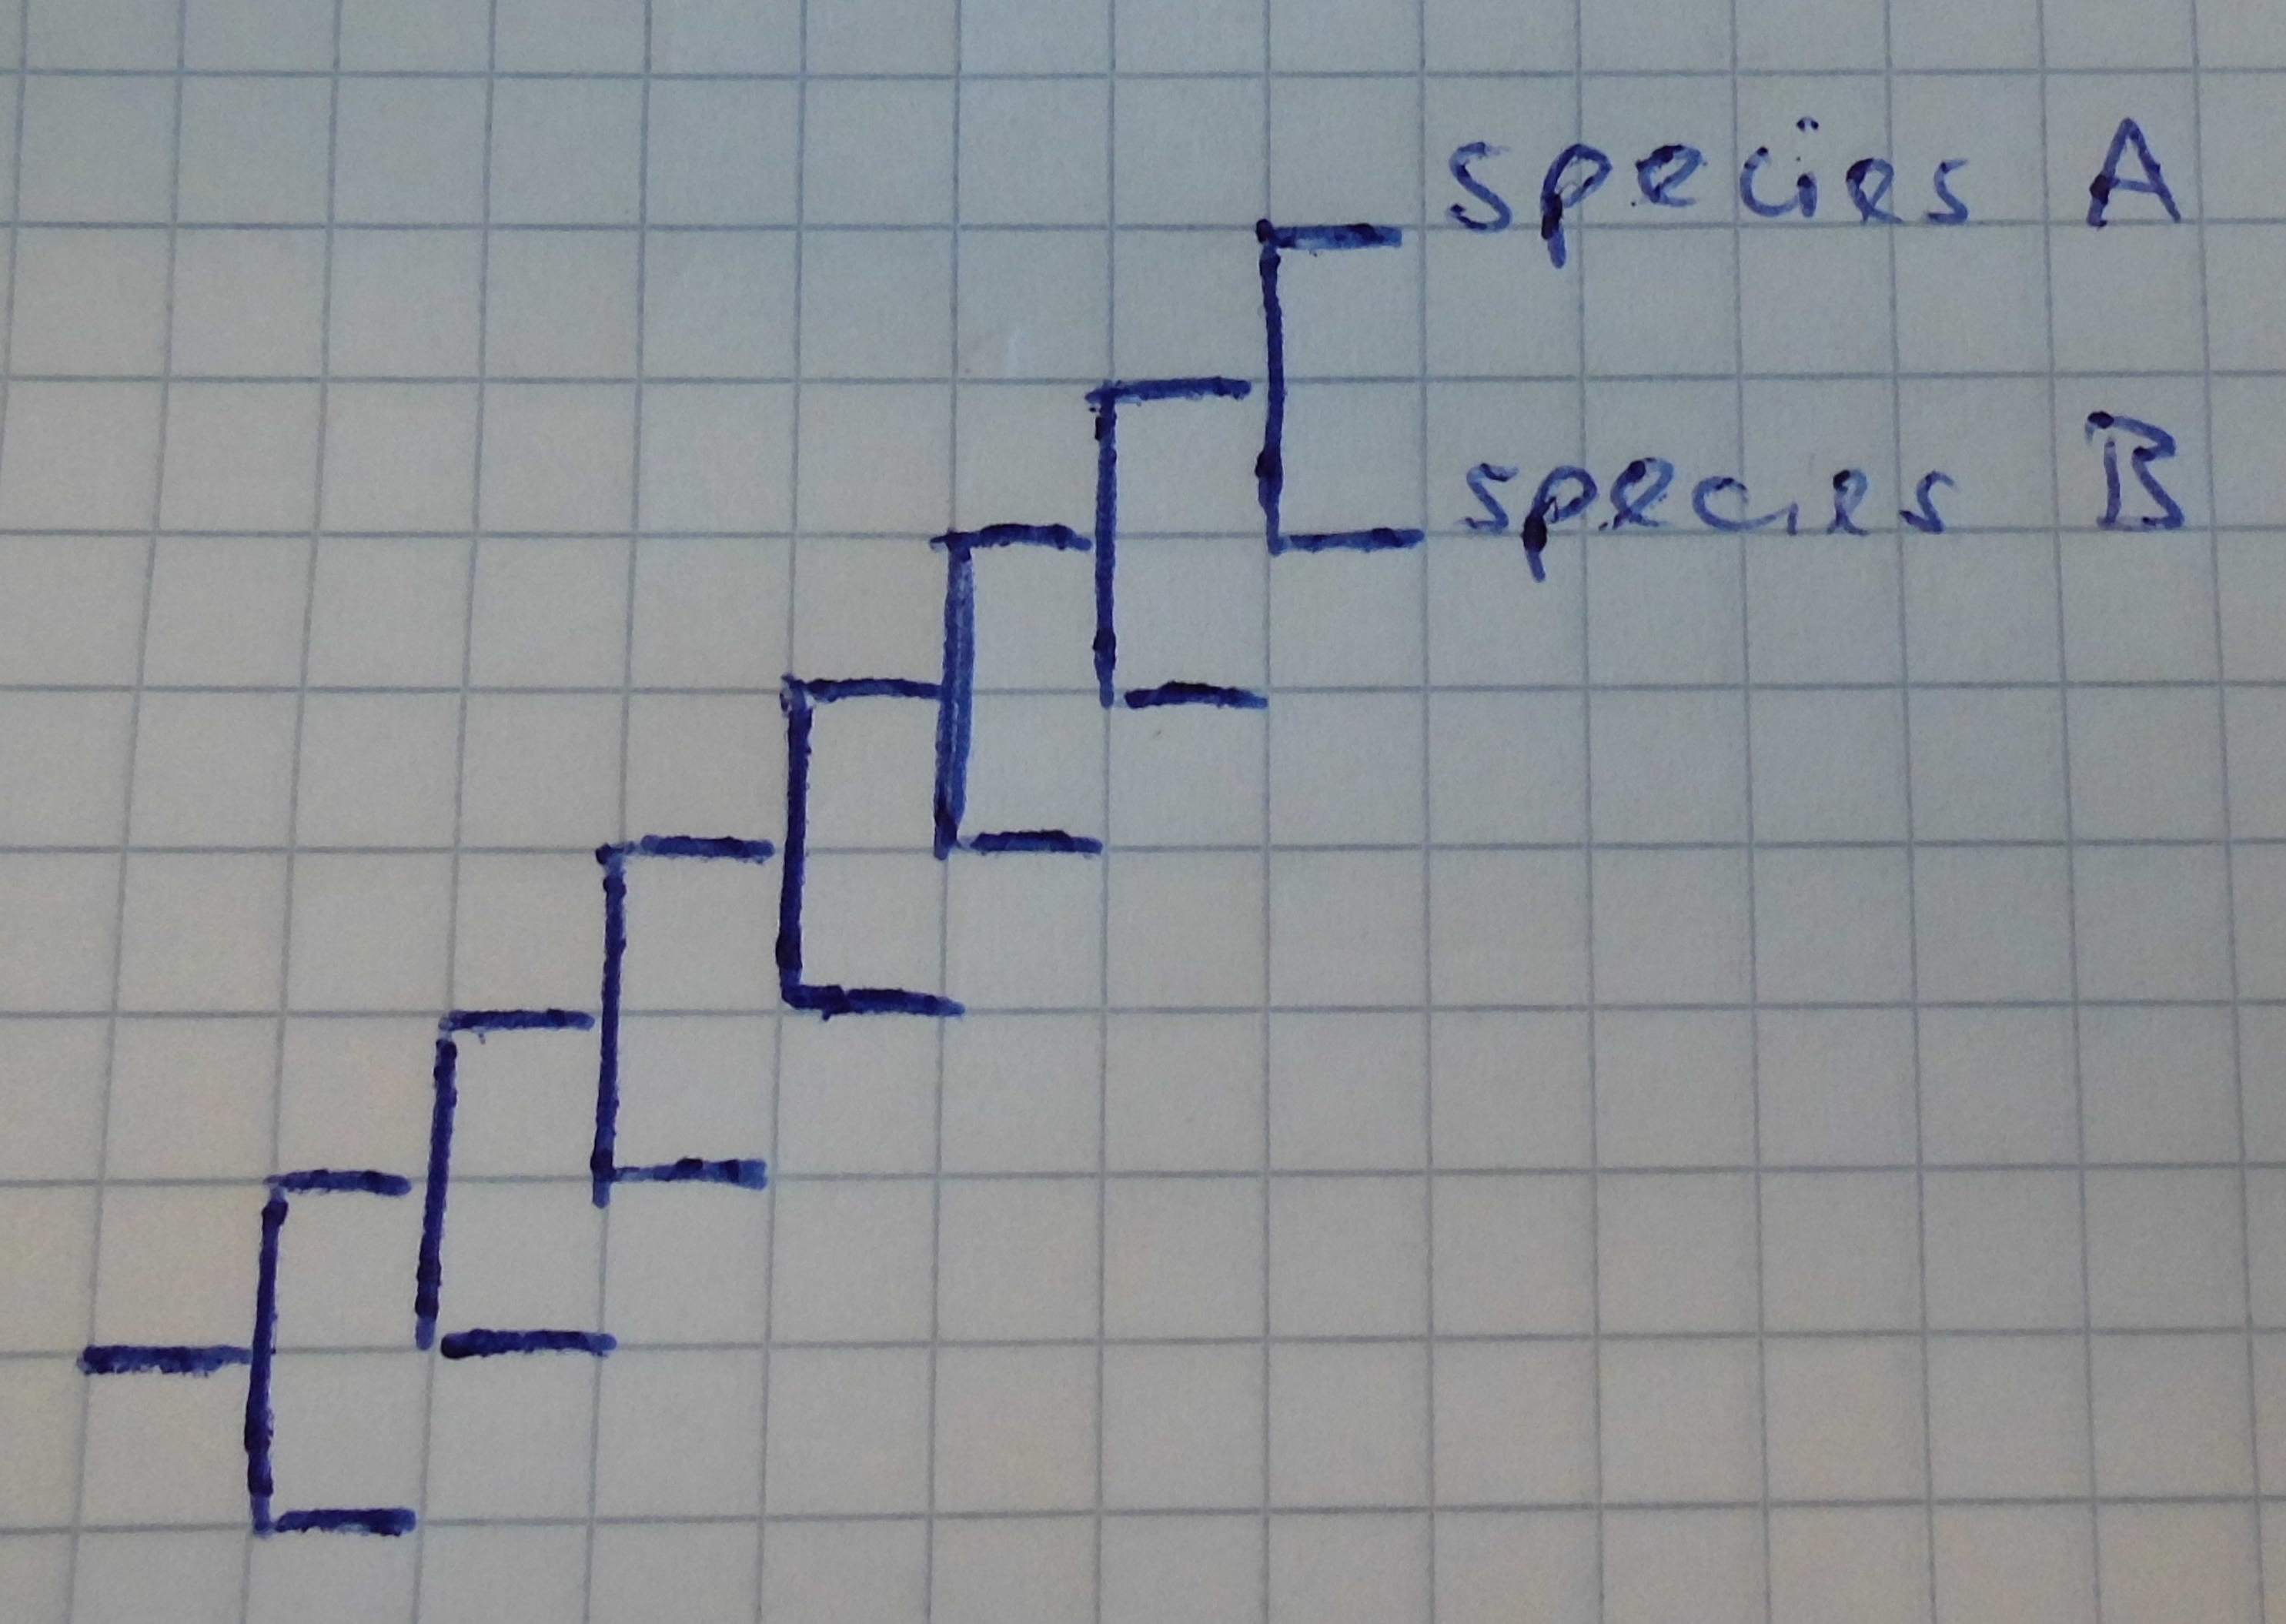 species A
species B